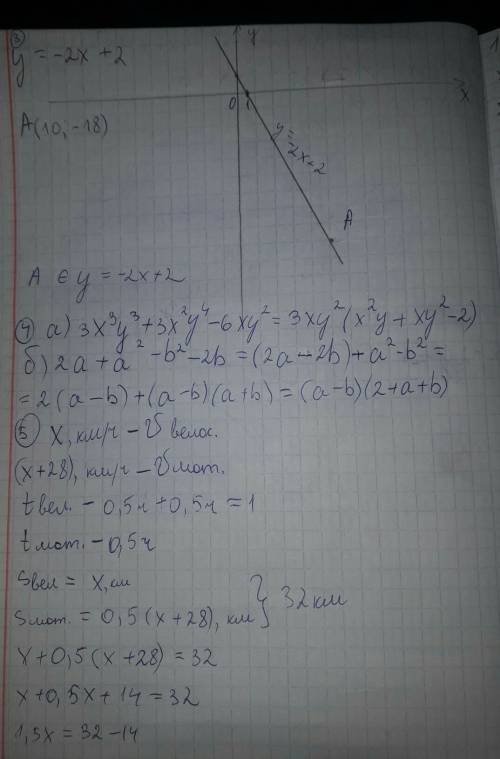 ③
y = -2x + 2
y
0 1
x
A(10; -18)
y = -2x+2
A
A ∈ y = -2x+2
④ а) 3x³y³+3x²y⁴-6xy² = 3xy²(x²y+xy²-2)
б) 2a + a² - b² - 2b = (2a-2b)+a²-b² =
= 2(a-b)+(a-b)(a+b) = (a-b)(2+a+b)
⑤ x, км/ч - V велос.
(x+28), км/ч - V мот.
t вел. - 0,5ч + 0,5ч = 1
t мот. - 0,5ч
Sвел = x, км
Sмот. = 0,5(x+28), км } 32 км
x+0,5(x+28) = 32
x+0,5x+14 = 32
1,5x = 32-14